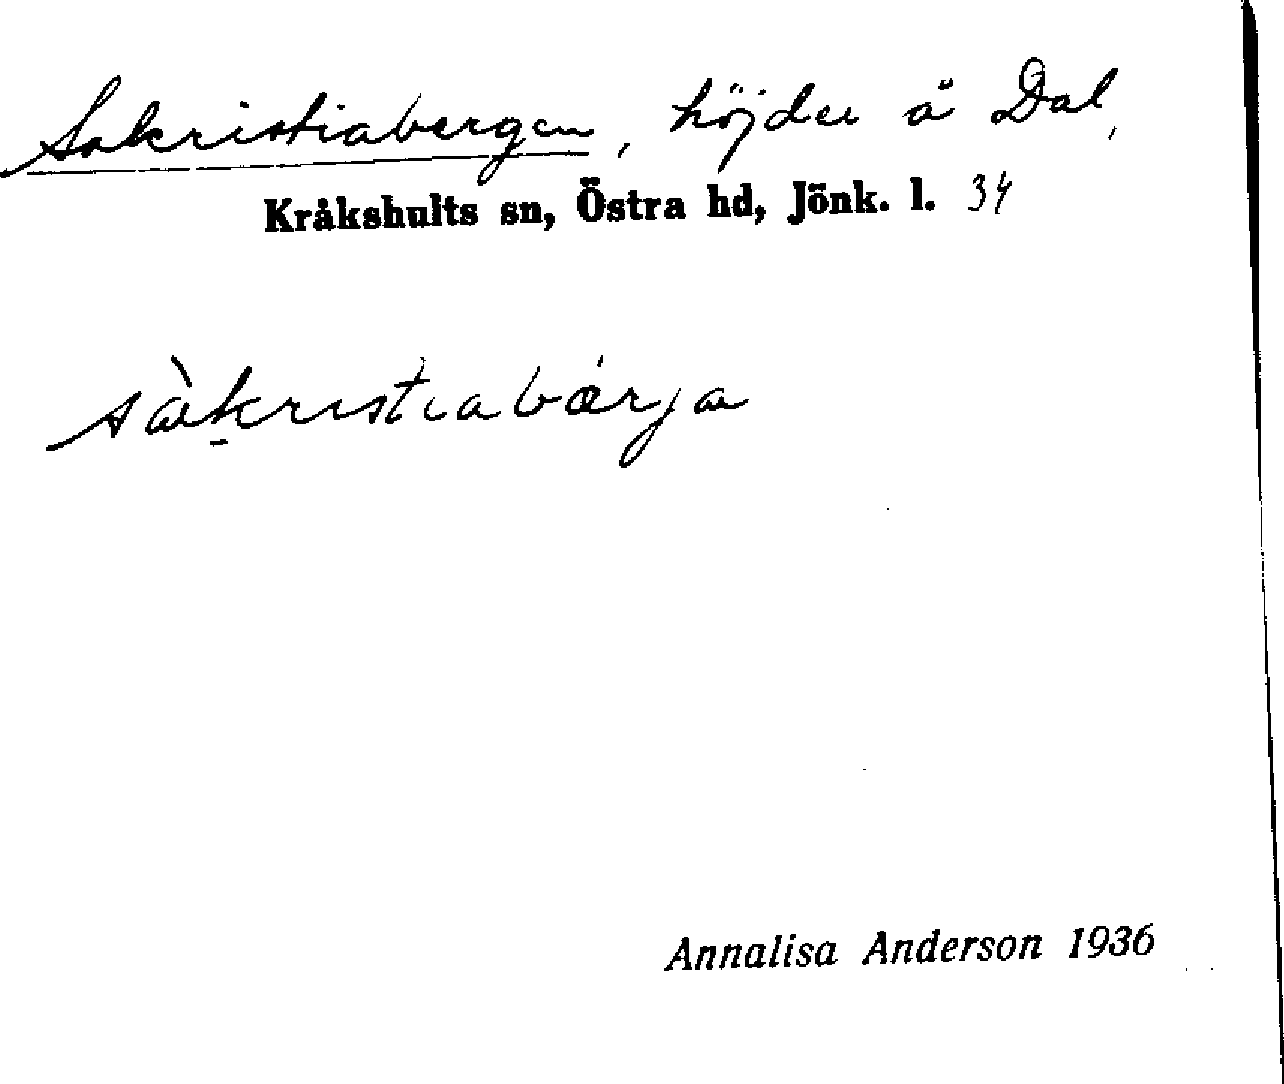 Sakristiabergen, höjder å Dal,
Kråkshults sn, Östra hd, Jönk. l. 34
sàkristiabárja
Annalisa Anderson 1936